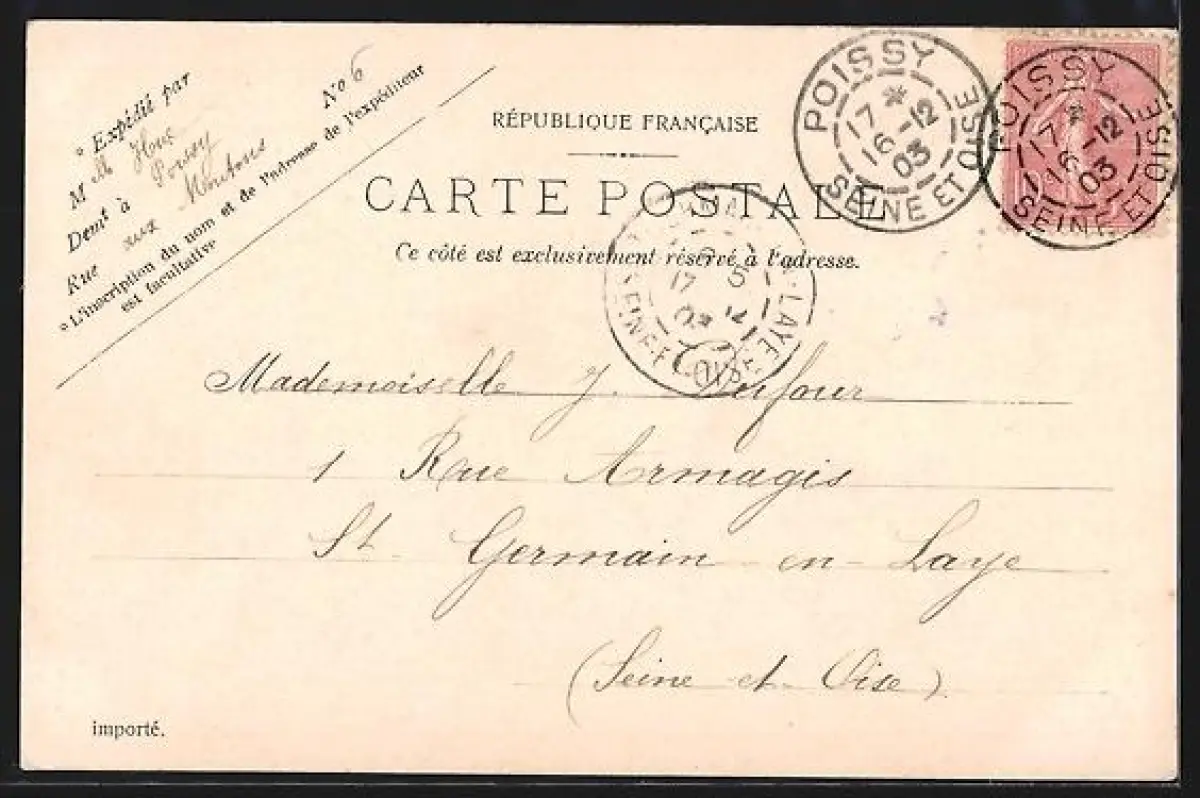 * Expédié par
M Mlle Hue
Demt à Poissy
Rue aux Moutons No 6
* L'inscription du nom et de l'adresse de l'expéditeur
est facultative
RÉPUBLIQUE FRANÇAISE
CARTE POSTALE
Ce côté est exclusivement réservé à l'adresse.
POISSY
17 *
16 -12
03
SEINE ET OISE
POISSY
17 *
16 -12
03
SEINE ET OISE
LAYE
17
12
03
SEINE-ET-OISE
Mademoiselle J. Dufour
1 Rue Armagis
St Germain en Laye
(Seine et Oise)
importé.